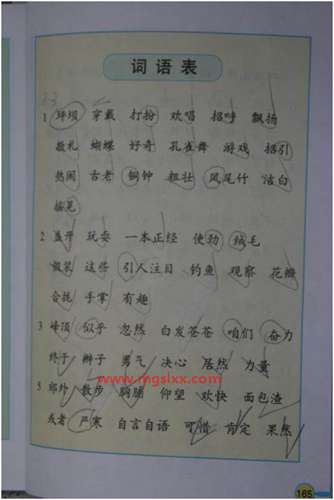 词语表
1 坪坝 穿戴 打扮 欢唱 招呼 飘扬
敬礼 蝴蝶 好奇 孔雀舞 游戏 招引
热闹 古老 铜钟 粗壮 凤尾竹 洁白
摇晃
2 盖开 玩耍 一本正经 使劲 绒毛
假装 这些 引人注目 钓鱼 观察 花瓣
合拢 手掌 有趣
3 峰顶 似乎 忽然 白发苍苍 咱们 奋力
终于 辫子 勇气 决心 居然 力量
www.mgslxx.com
5 郊外 散步 胸脯 仰望 欢快 面包渣
或者 严寒 自言自语 可惜 肯定 果然
165